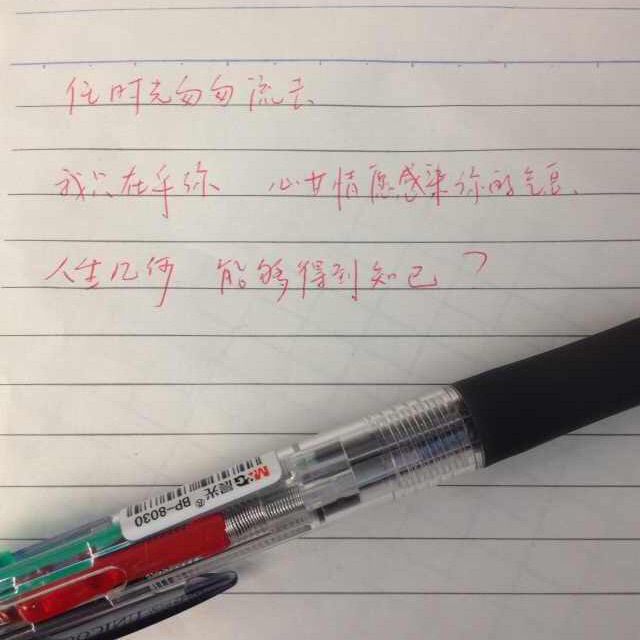 任时光匆匆流去
我只在乎你 心甘情愿感染你的气息
人生几何 能够得到知己?
M&G晨光® BP-8030